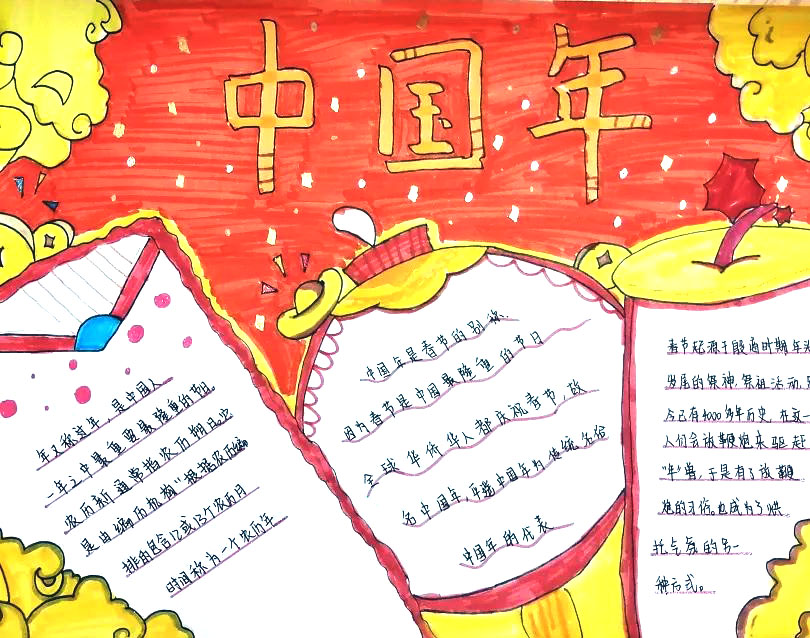 中国年
年又称过年，是中国人
一年之中最重要最隆重的节日。
农历新 通常指农历期日,也
是由编历机构"根据农历编
排的包含12或13个农历月
时间称为一个农历年
中国年是春节的别称.
因为春节是中国最隆重的节日
全球华侨华人都庆祝春节，故
名中国年,年 中国年为传统名俗
中国年的代表
春节起源于殷商时期年
岁尾的祭神.祭祖活动,
今已有4000多年历史.在这一
人们会放鞭炮来驱赶
"年"兽,于是有了放鞭
炮的习俗。也成为了烘
托气氛的另一
种方式。